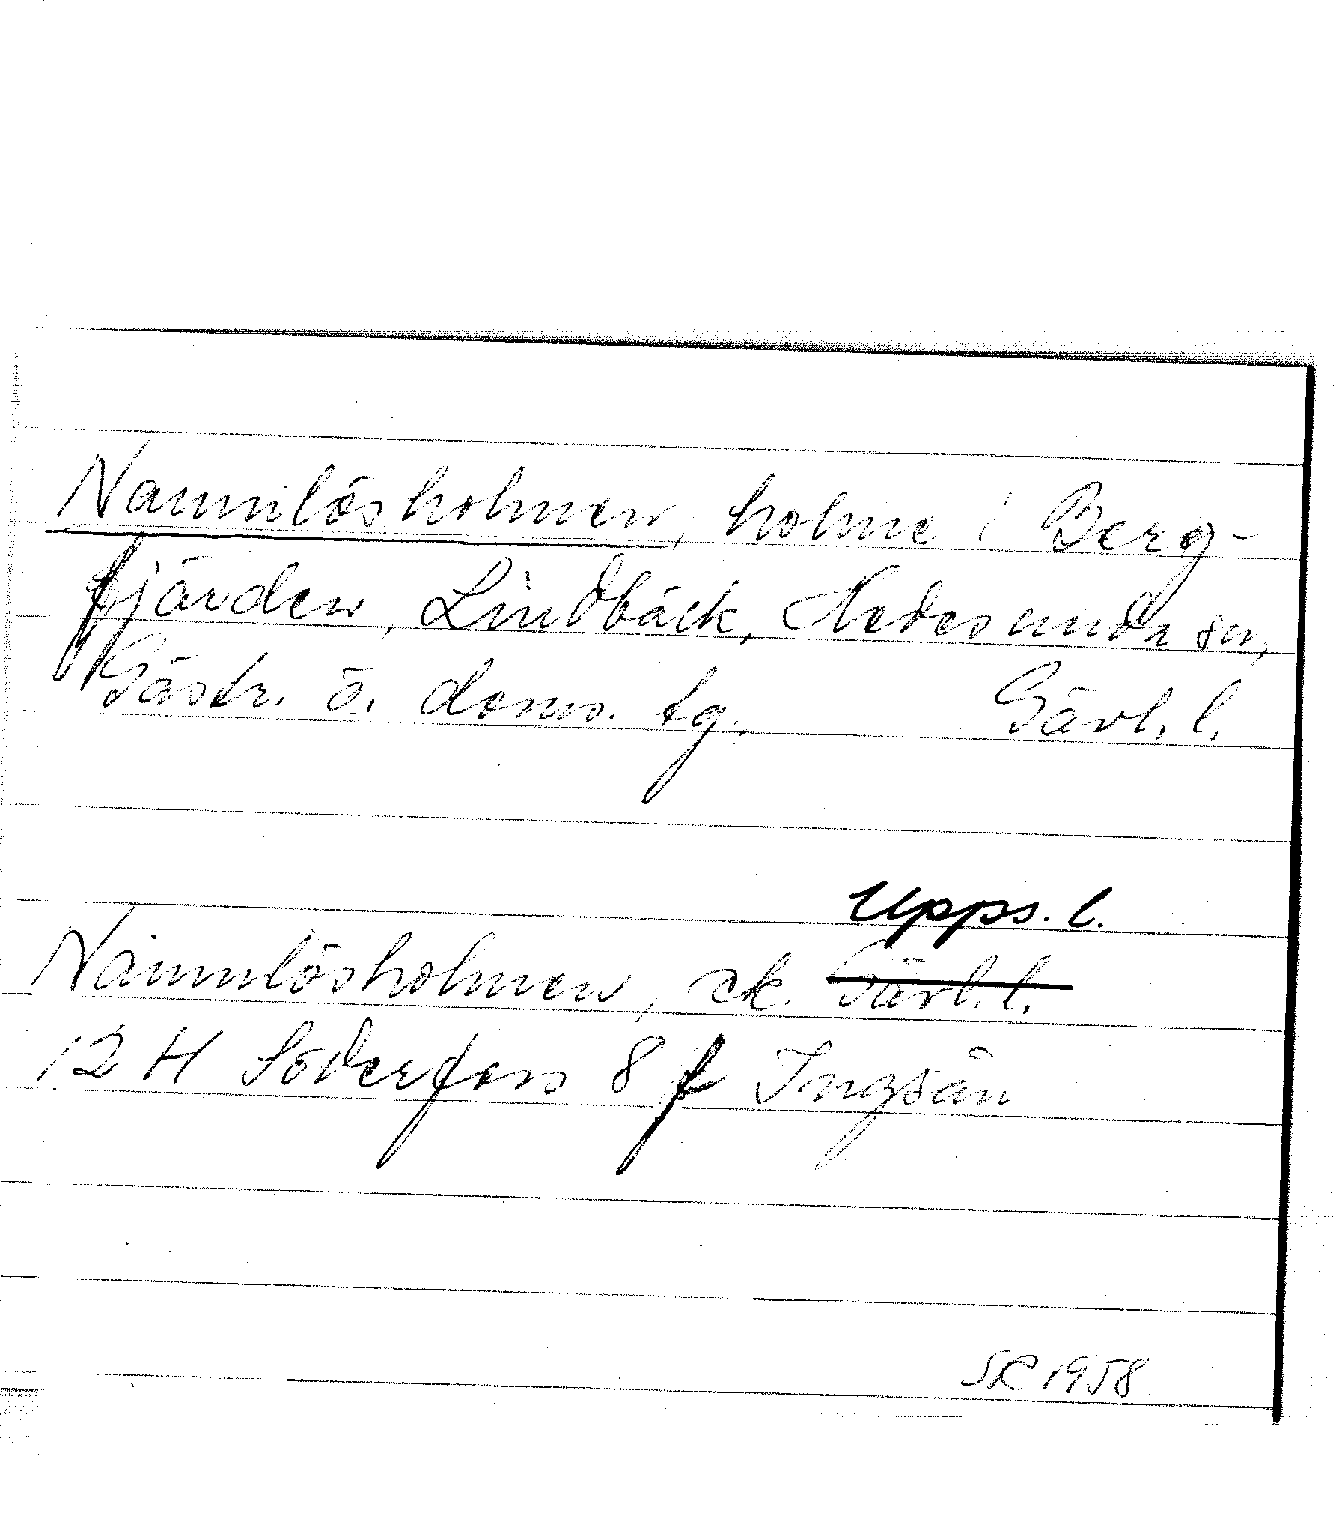 Namnlösholmen, holme i Berg-
fjärden, Lindbäck, Hedesunda sn,
Gästr. ö. doms. tg. Gävl. l.
Upps. l.
Namnlösholmen, ek. Gävl. l.
12 H Söderfors 8 f Ingsån
SR 1958